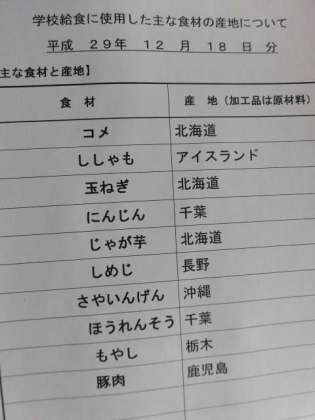 学校給食に使用した主な食材の産地について
平成 29年 12 月 18 日 分
主な食材と産地】
食 材 産 地（加工品は原材料）
コメ 北海道
ししゃも アイスランド
玉ねぎ 北海道
にんじん 千葉
じゃが芋 北海道
しめじ 長野
さやいんげん 沖縄
ほうれんそう 千葉
もやし 栃木
豚肉 鹿児島